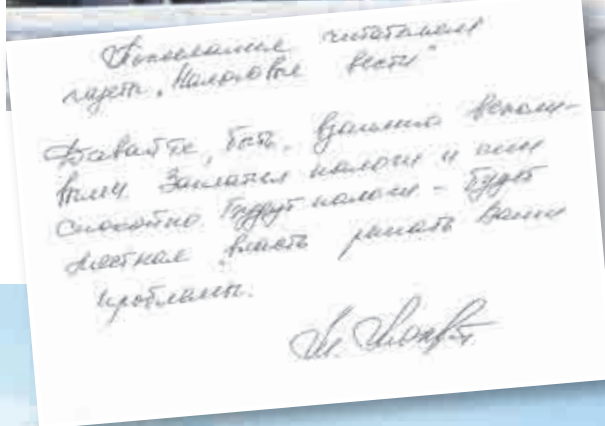 Пожелание читателям
газеты „Налоговые вести“
Давайте, быть взаимно вежли-
выми. Заплатил налоги и спи
спокойно. Будут налоги - будет
местная власть решать Ваши
проблемы.